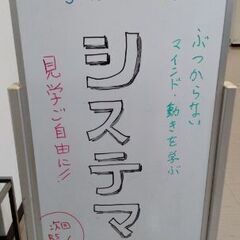 ぶつからない
マインド・動きを学ぶ
システマ
見学ご自由に!!
次回